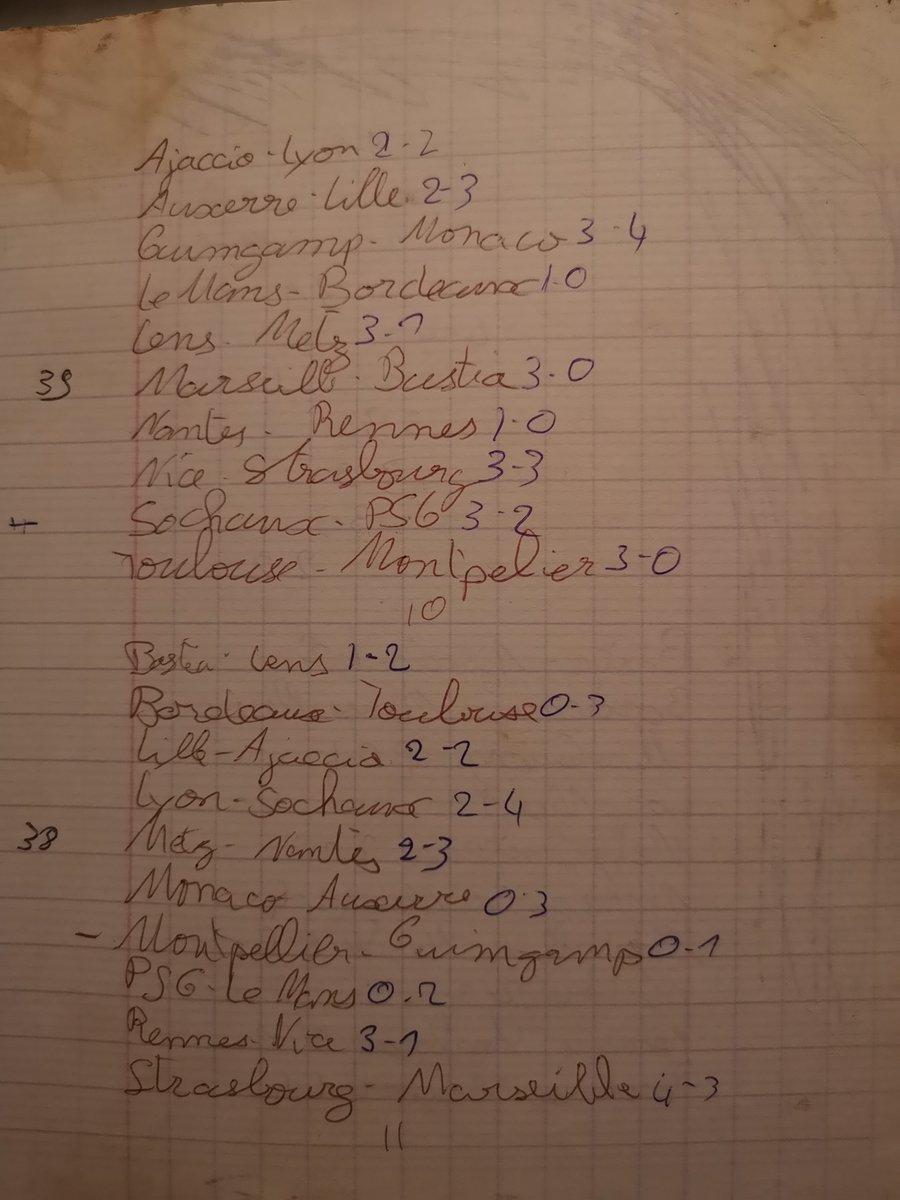 Ajaccio-Lyon 2-2
Auxerre-Lille 2-3
Guimgamp-Monaco 3-4
Le Mans-Bordeaux 1-0
Lens-Metz 3-1
39 Marseille-Bastia 3-0
Nantes-Rennes 1-0
Nice Strasbourg 3-3
Sochaux-PSG 3-2
Toulouse-Montpelier 3-0
10
Bastia-Lens 1-2
Bordeaux-Toulouse 0-3
Lille-Ajaccio 2-2
Lyon-Sochaux 2-4
38 Metz-Nantes 2-3
Monaco Auxerre 0-3
- Montpellier-Guimgamp 0-1
PSG-Le Mans 0-2
Rennes-Nice 3-1
Strasbourg-Marseille 4-3
11